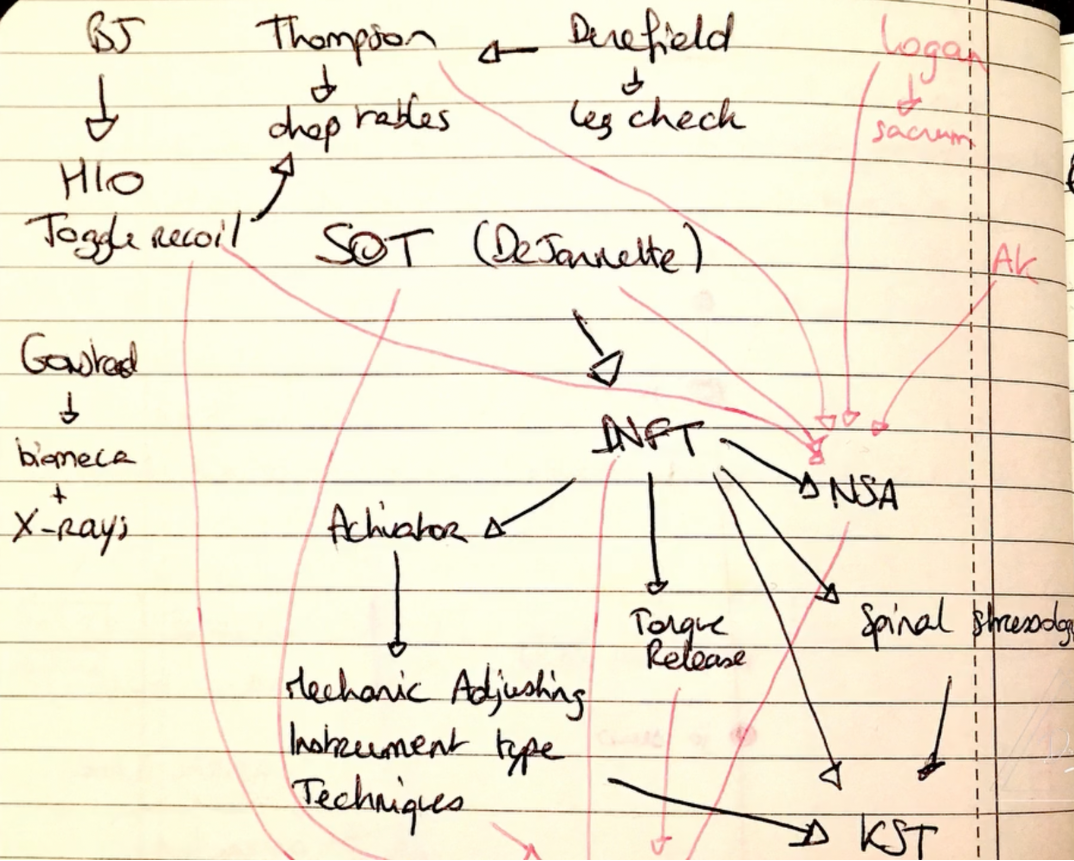 BJ
Thompson
Derefield
Logan
drop tables
leg check
sacrum
HIO
Toggle recoil
SOT (DeJarnette)
AK
Gonstead
biomeca
+
X-rays
DNFT
NSA
Activator
Torque
Release
Spinal stressology
Mechanic Adjusting
Instrument type
Techniques
KST